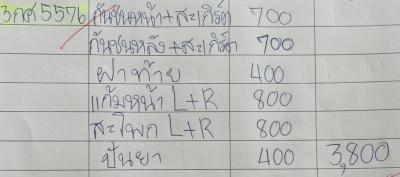 3กศ5576 กันชนหน้า+สะเกิร์ต 700
กันชนหลัง+สะเกิร์ต 700
ฝาท้าย 400
แก้มหน้า L+R 800
สะโพก L+R 800
ปันยา 400 3,800